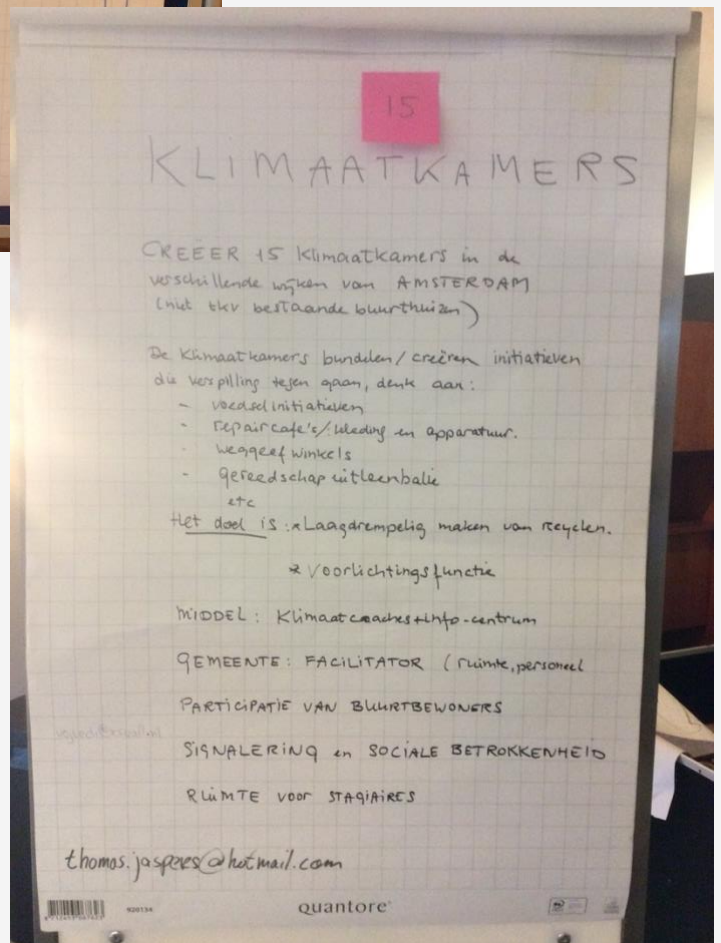 15
KLIMAATKAMERS
CREËER 15 Klimaatkamers in de
verschillende wijken van AMSTERDAM
(niet tkv bestaande buurthuizen)
De Klimaatkamers bundelen/creëren initiatieven
die verspilling tegen gaan, denk aan:
- voedselinitiatieven
- repaircafe's/kleding en apparatuur.
- weggeef winkels
- gereedschap uitleenbalie
etc
Het doel is: * Laagdrempelig maken van recyclen.
* Voorlichtingsfunctie
MIDDEL: Klimaatcoaches + info-centrum
GEMEENTE: FACILITATOR (ruimte, personeel
PARTICIPATIE VAN BUURTBEWONERS
SIGNALERING en SOCIALE BETROKKENHEID
RUIMTE voor STAGIAIRES
thomas.jaspers@hotmail.com
920134
quantore